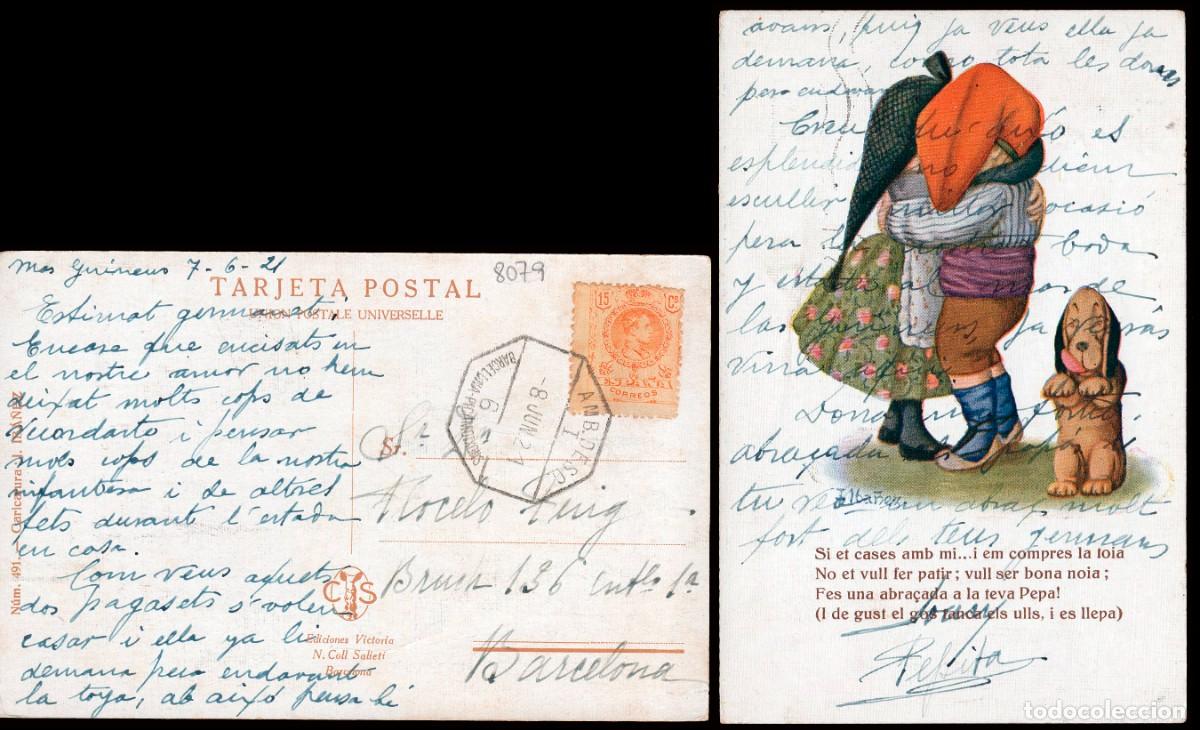 Mas Guineus 7-6-21
8079
TARJETA POSTAL
UNION POSTALE UNIVERSELLE
15 Cs
CORREOS
Estimat germanet;
Encare que encisats en
el nostre amor no hem
deixat molts cops de
recordarte i pensar
mes cops de la nostra
infantesa i de altres
fets durant l'estada
en casa.
Com veus aquets
dos pagasets s'volen
casar i ella ya li
demana pera endavant
la toya, ab aixó pensa hi
AMB. DESC.
I
8 JUN 21
6
BARCELONA
Sr.
Puig
Bruch 136 entlo 1ª
Barcelona
Núm. 491. — Caricatura J. IBÁÑEZ
C S
Ediciones Victoria
N. Coll Salieti
Barcelona
avans, puig ja veus ella ya
demana, como tota les dones
pera endavan
Creu que aixó es
esplendid no podieu
escullir millor ocasió
pera la nostra boda
y estada al mas de
las Guineus ya veurás
Dona una forta
abraçada als papás i
tu reb un abraç molt
fort dels teus germans
Ibañez
Si et cases amb mi...i em compres la toia
No et vull fer patir; vull ser bona noia;
Fes una abraçada a la teva Pepa!
(I de gust el gos tanca els ulls, i es llepa)
Pepita
todocoleccion.net